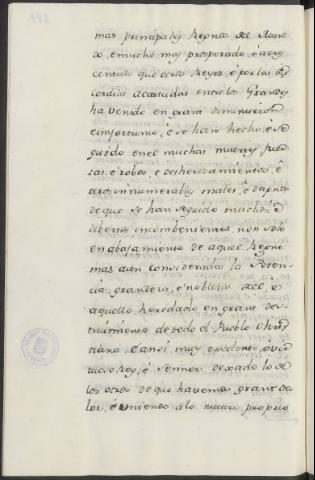 mas principales Reynos del Mun-
do, e mucho mas prosperado, e acre-
centado que otros Reyes, e por las dis-
cordias acaescidas entre los Grandes
ha venido en grant diminucion
e infortunio, e se han hecho, e se-
guido en el muchas muertes, fuer-
zas, e robos, e desheredamientos, e
otros innumerables males, e dapnos
de que se han seguido muchos, e
diversos incombenientes, non solo
en abajamiento de aquel Regno
mas aun considerada la Poten-
cia, grandeza, e nobleza del, e
aquello heredado en grant des-
truimiento de todo el Pueblo Chris-
tiano, e ansi muy excelente, e vir-
tuoso Rey, e Sennor, dexado lo de
los otros de que havemos grant do-
lor, e viniendo a lo nuestro proprio